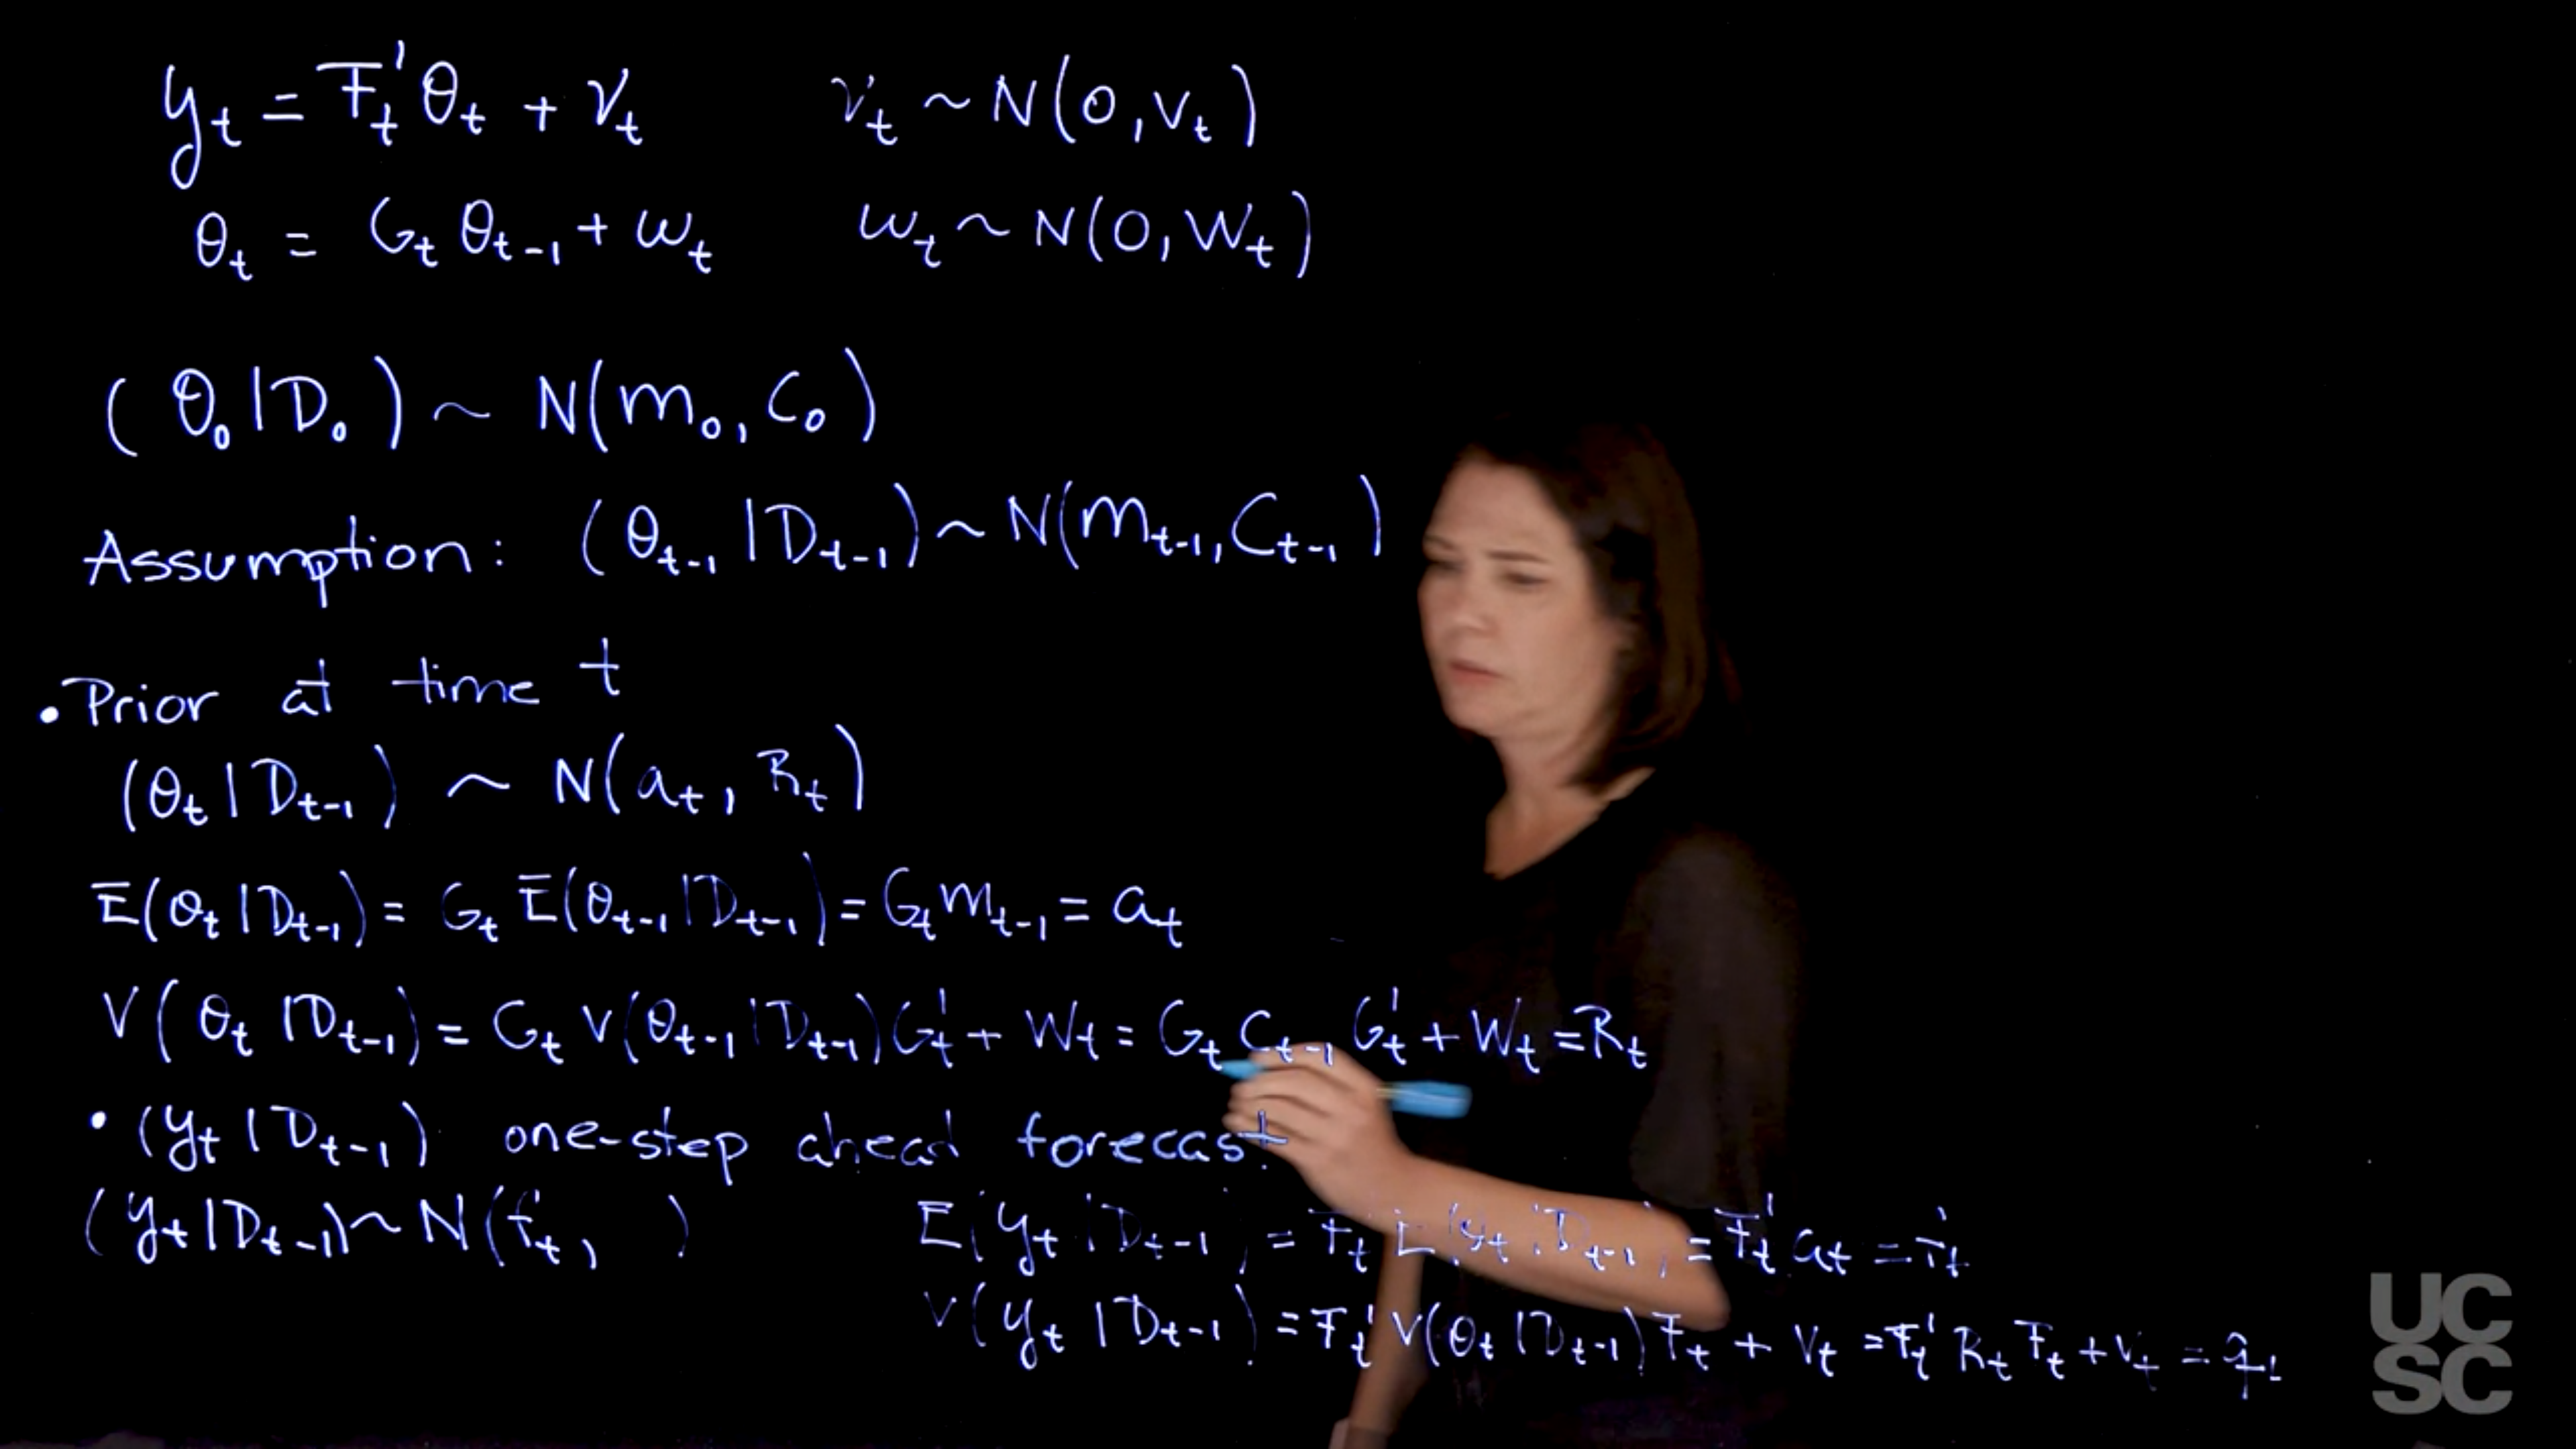 yₜ = Fₜ' θₜ + νₜ    νₜ ~ N(0, vₜ)
θₜ = Gₜ θₜ₋₁ + ωₜ    ωₜ ~ N(0, Wₜ)
(θ₀ | D₀) ~ N(m₀, C₀)
Assumption: (θₜ₋₁ | Dₜ₋₁) ~ N(mₜ₋₁, Cₜ₋₁)
• Prior at time t
(θₜ | Dₜ₋₁) ~ N(aₜ, Rₜ)
E(θₜ | Dₜ₋₁) = Gₜ E(θₜ₋₁ | Dₜ₋₁) = Gₜ mₜ₋₁ = aₜ
V(θₜ | Dₜ₋₁) = Gₜ V(θₜ₋₁ | Dₜ₋₁) Gₜ' + Wₜ = Gₜ Cₜ₋₁ Gₜ' + Wₜ = Rₜ
• (yₜ | Dₜ₋₁) one-step ahead forecast
(yₜ | Dₜ₋₁) ~ N(fₜ,    )    E(yₜ | Dₜ₋₁) = Fₜ' E(yₜ | Dₜ₋₁) = Fₜ' aₜ = fₜ
V(yₜ | Dₜ₋₁) = Fₜ' V(θₜ | Dₜ₋₁) Fₜ + vₜ = Fₜ' Rₜ Fₜ + vₜ = qₜ
UC
SC